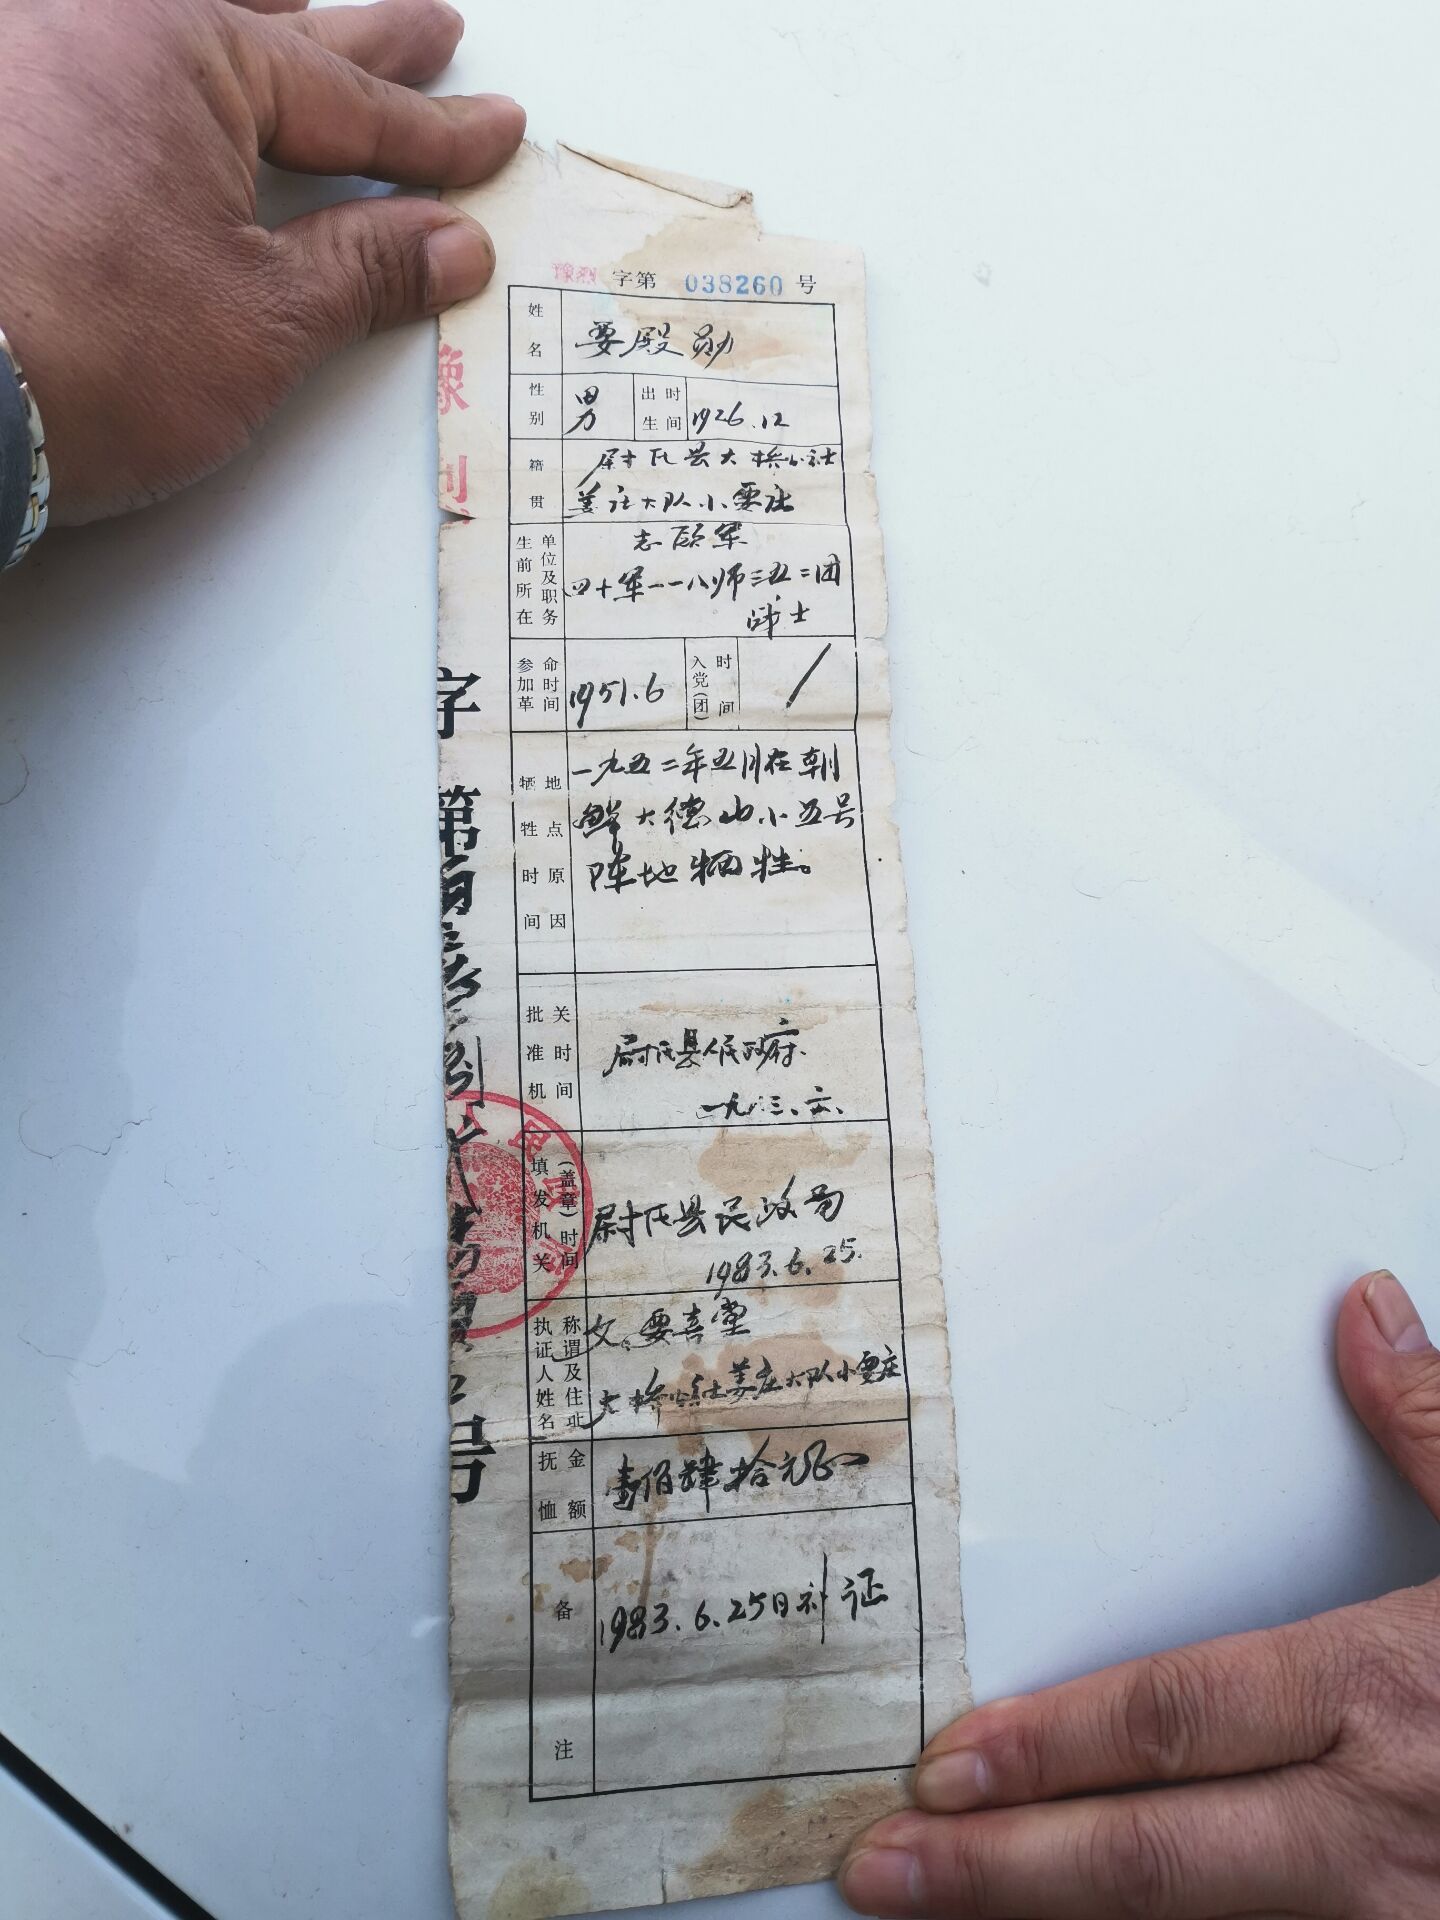 豫烈 字第 038260 号
姓名 要殿勋
性别 男 出生时间 1926.12
籍贯 尉氏县大桥公社
姜庄大队小要庄
生前所在单位及职务 志愿军
四十军一一八师三五二团
战士
参加革命时间 1951.6 入党(团)时间 /
牺牲时间地点原因 一九五二年五月在朝
鲜大德山小五号
阵地牺牲。
批准机关时间 尉氏县人民政府
一九八三、六、
填发机关(盖章)时间 尉氏县民政局
1983.6.25.
执证人姓名称谓及住址 父:要喜堂
大桥公社姜庄大队小要庄
抚恤金额 壹佰肆拾元正
备注 1983.6.25日补证
豫
字第
号